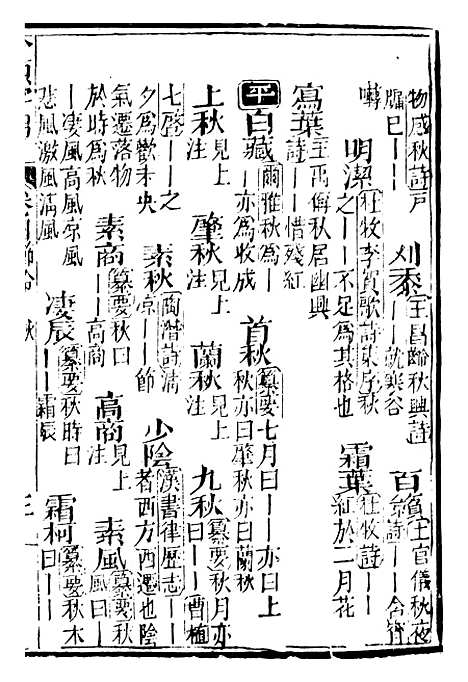 物感秋詩戸
牖已——　刈黍王昌齡秋興詩
——就寒谷　百
賓王官儀秋夜
詩——含響
囀　明潔杜牧李賀歌詩集序秋
之——不足爲其格也　霜葉杜牧詩——
紅於二月花
寫葉王禹偁秋居幽興
詩——惜殘紅
平　白藏爾雅秋爲—
—亦爲收成　首秋纂要七月曰——亦曰上
秋亦曰肇秋亦曰蘭秋
上秋見上
注　肇秋見上
注　蘭秋見上
注　九秋纂要秋月亦
曰——曹植
七啓——之
夕爲歡未央　素秋陶潛詩清
涼——節　少陰漢書律歷志——
者西方西遷也陰
氣遷落物
於時爲秋　素商纂要秋曰
——高商　高商見上
注　素風纂要秋
風曰——
—凄風高風凉風
悲風激風清風　凄辰纂要秋時曰
——霜辰　霜柯纂要秋木
曰——
秋